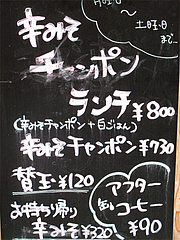 月曜日
〜
土曜・日
まで…
辛みそ
チャンポン
ランチ ¥800
(辛みそチャンポン+白ごはん)
辛みそチャンポン¥730
替玉 ¥120
お持ち帰り
辛みそ¥320
アフター
コーヒー
¥90